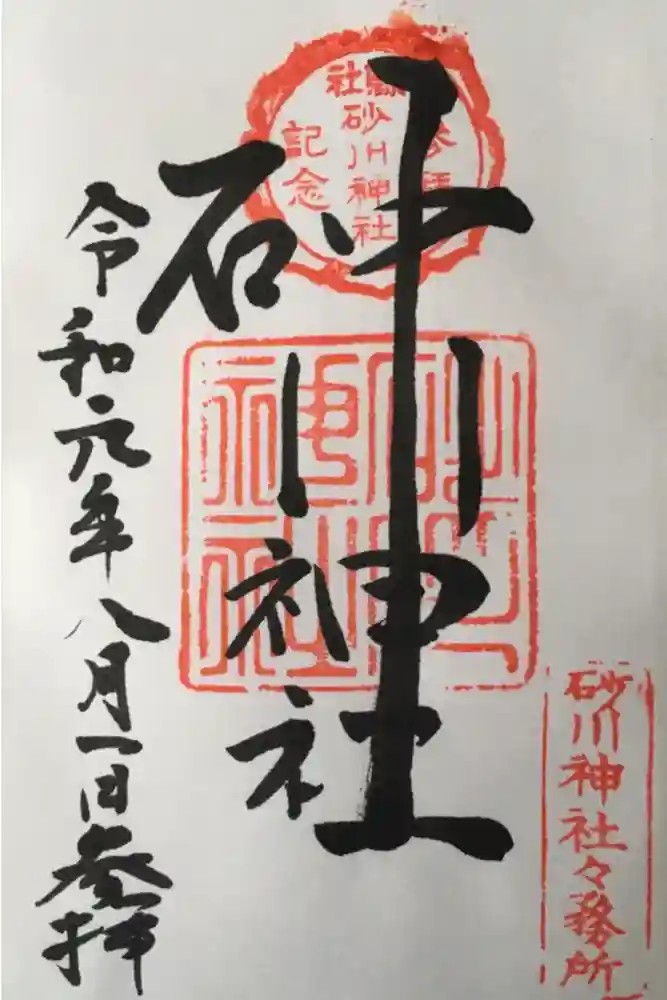 縣社
参拝
砂川神社
記念
砂川神社
砂川
神社
令和元年八月一日参拝
砂川神社々務所